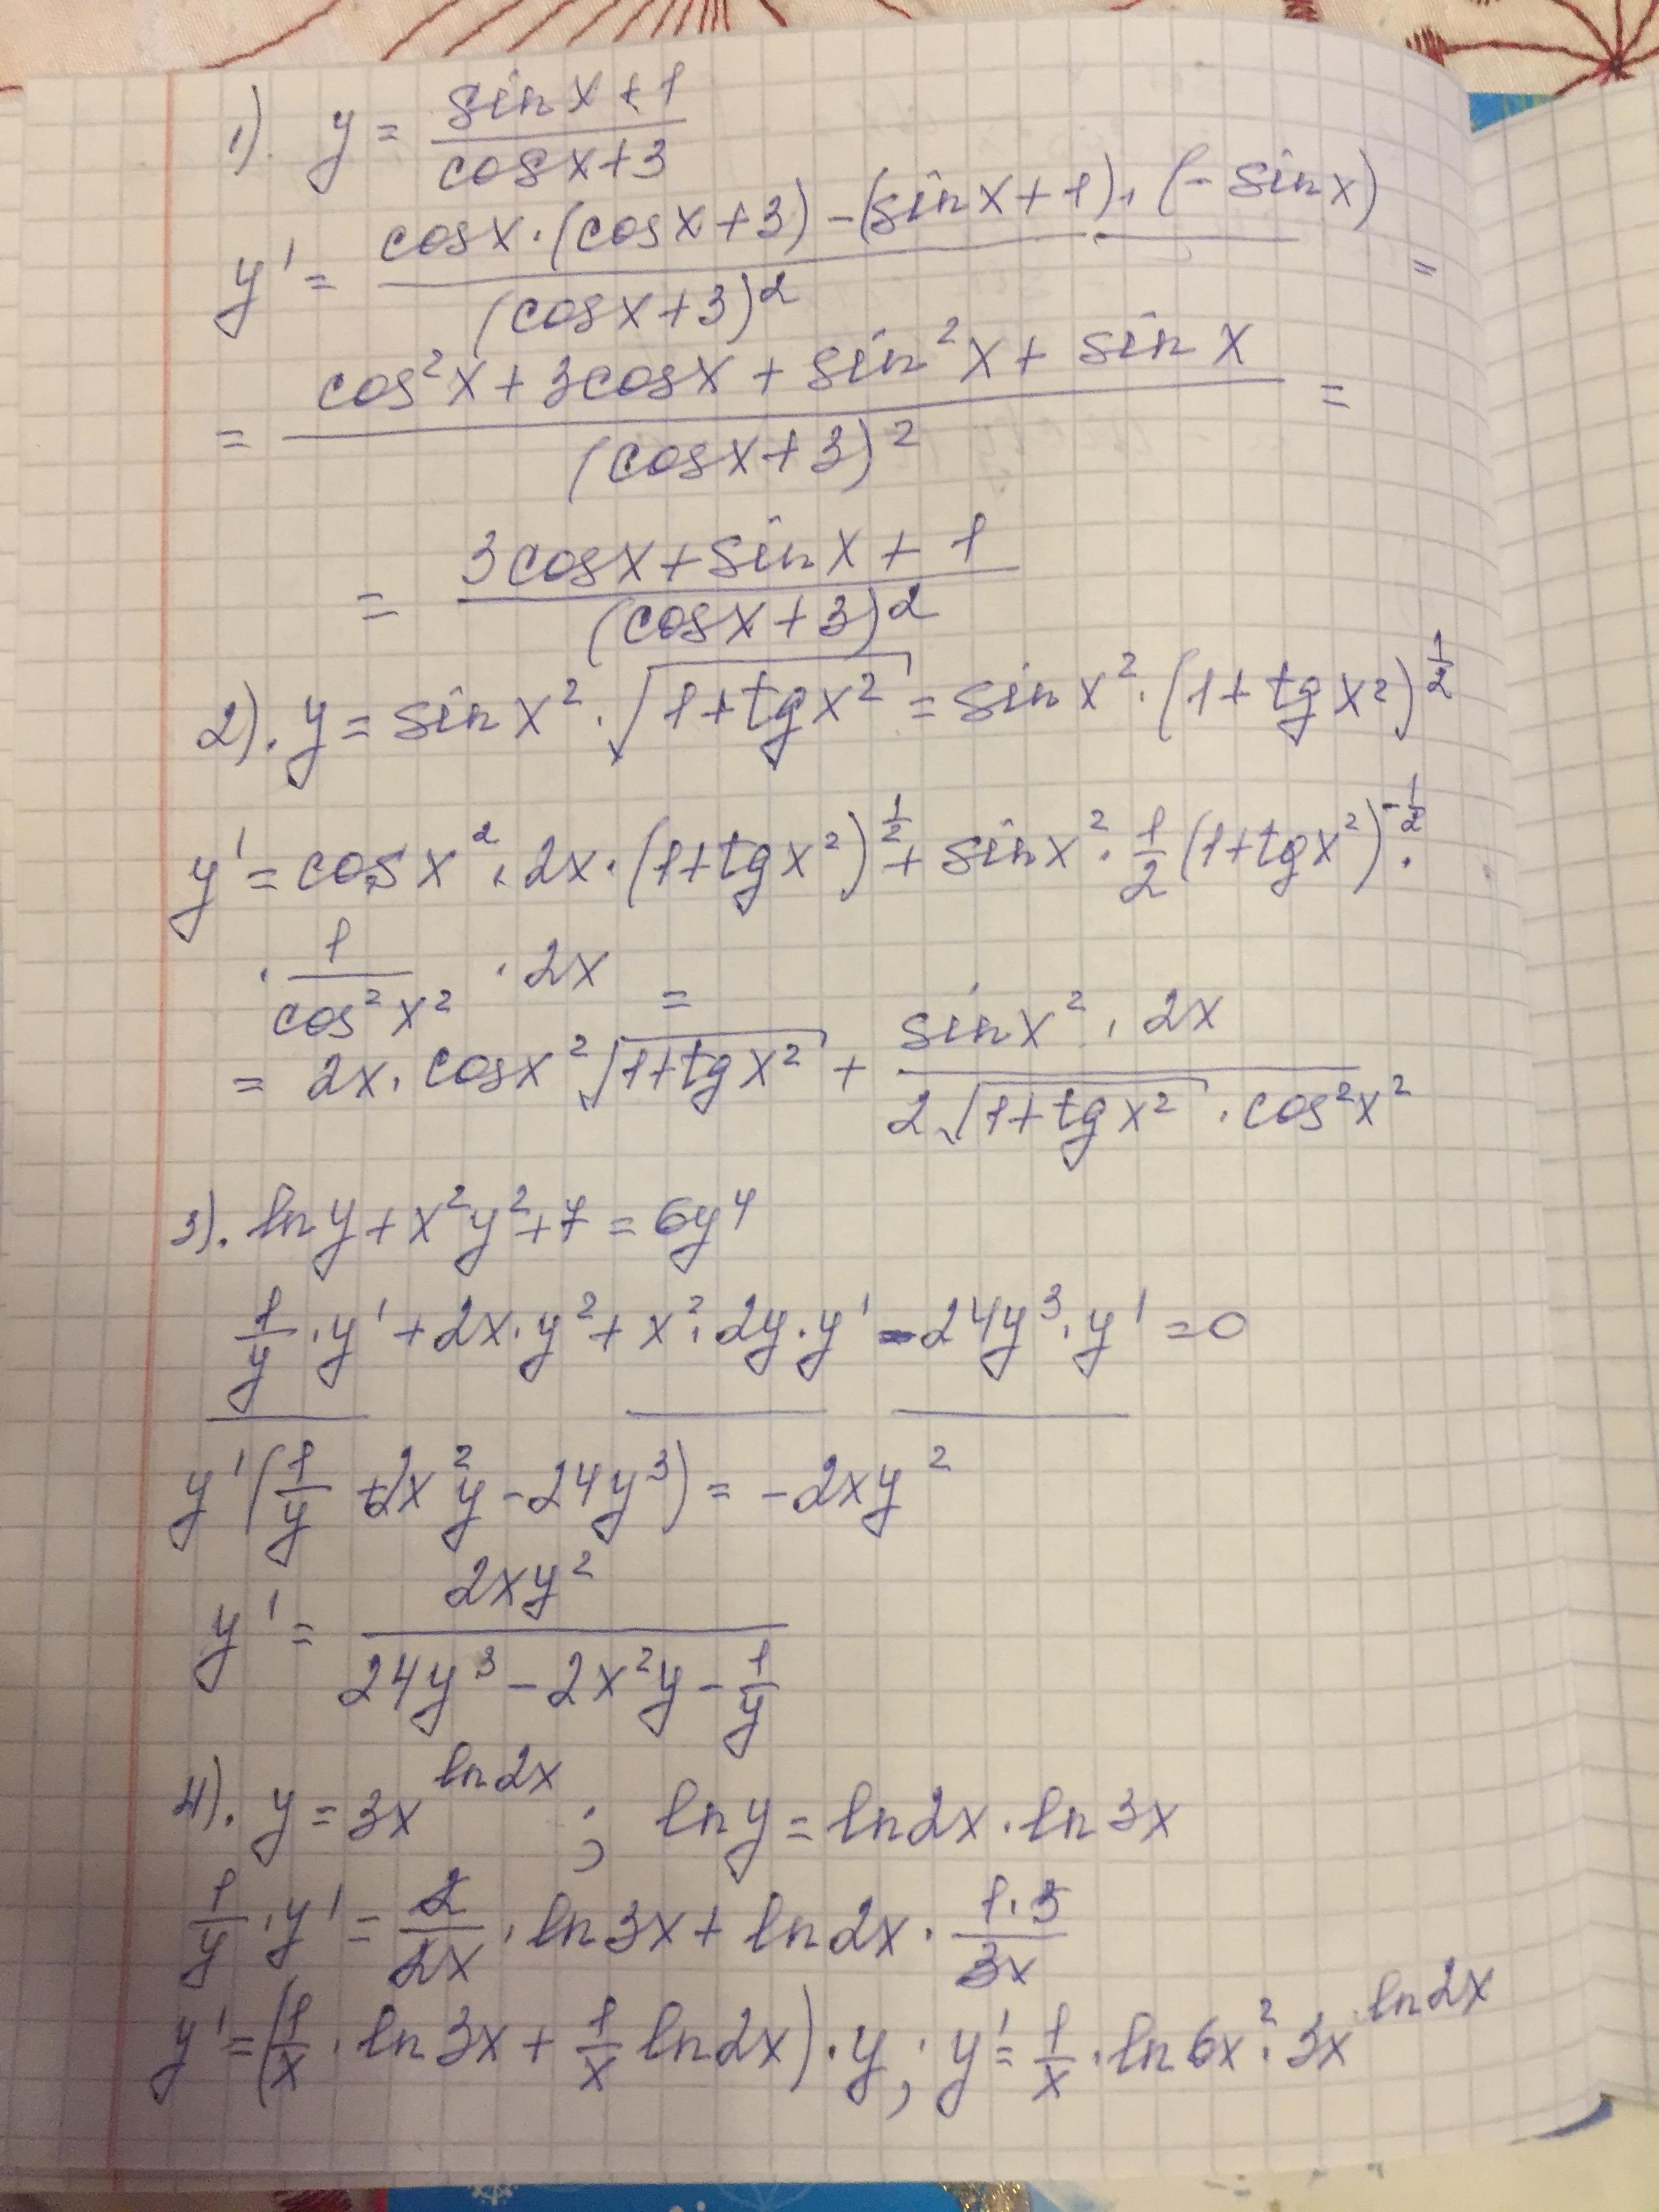 1). y = (sin x + 1)/(cos x + 3)
y' = (cos x · (cos x + 3) - (sin x + 1) · (- sin x))/(cos x + 3)² =
= (cos² x + 3 cos x + sin² x + sin x)/(cos x + 3)² =
= (3 cos x + sin x + 1)/(cos x + 3)²
2). y = sin x² · √(1 + tg x²) = sin x² · (1 + tg x²)^(1/2)
y' = cos x² · 2x · (1 + tg x²)^(1/2) + sin x² · 1/2 (1 + tg x²)^(-1/2) ·
· 1/(cos² x²) · 2x =
= 2x · cos x² √(1 + tg x²) + (sin x² · 2x)/(2 √(1 + tg x²) · cos² x²)
3). ln y + x² y² + 7 = 6y⁴
1/y · y' + 2x · y² + x² · 2y · y' - 24y³ · y' = 0
y' (1/y + 2x² y - 24y³) = - 2xy²
y' = 2xy²/(24y³ - 2x² y - 1/y)
4). y = 3x^(ln 2x) ; ln y = ln 2x · ln 3x
1/y · y' = 2/2x · ln 3x + ln 2x · (1 · 3)/3x
y' = (1/x · ln 3x + 1/x ln 2x) · y ; y' = 1/x · ln 6x² · 3x^(ln 2x)